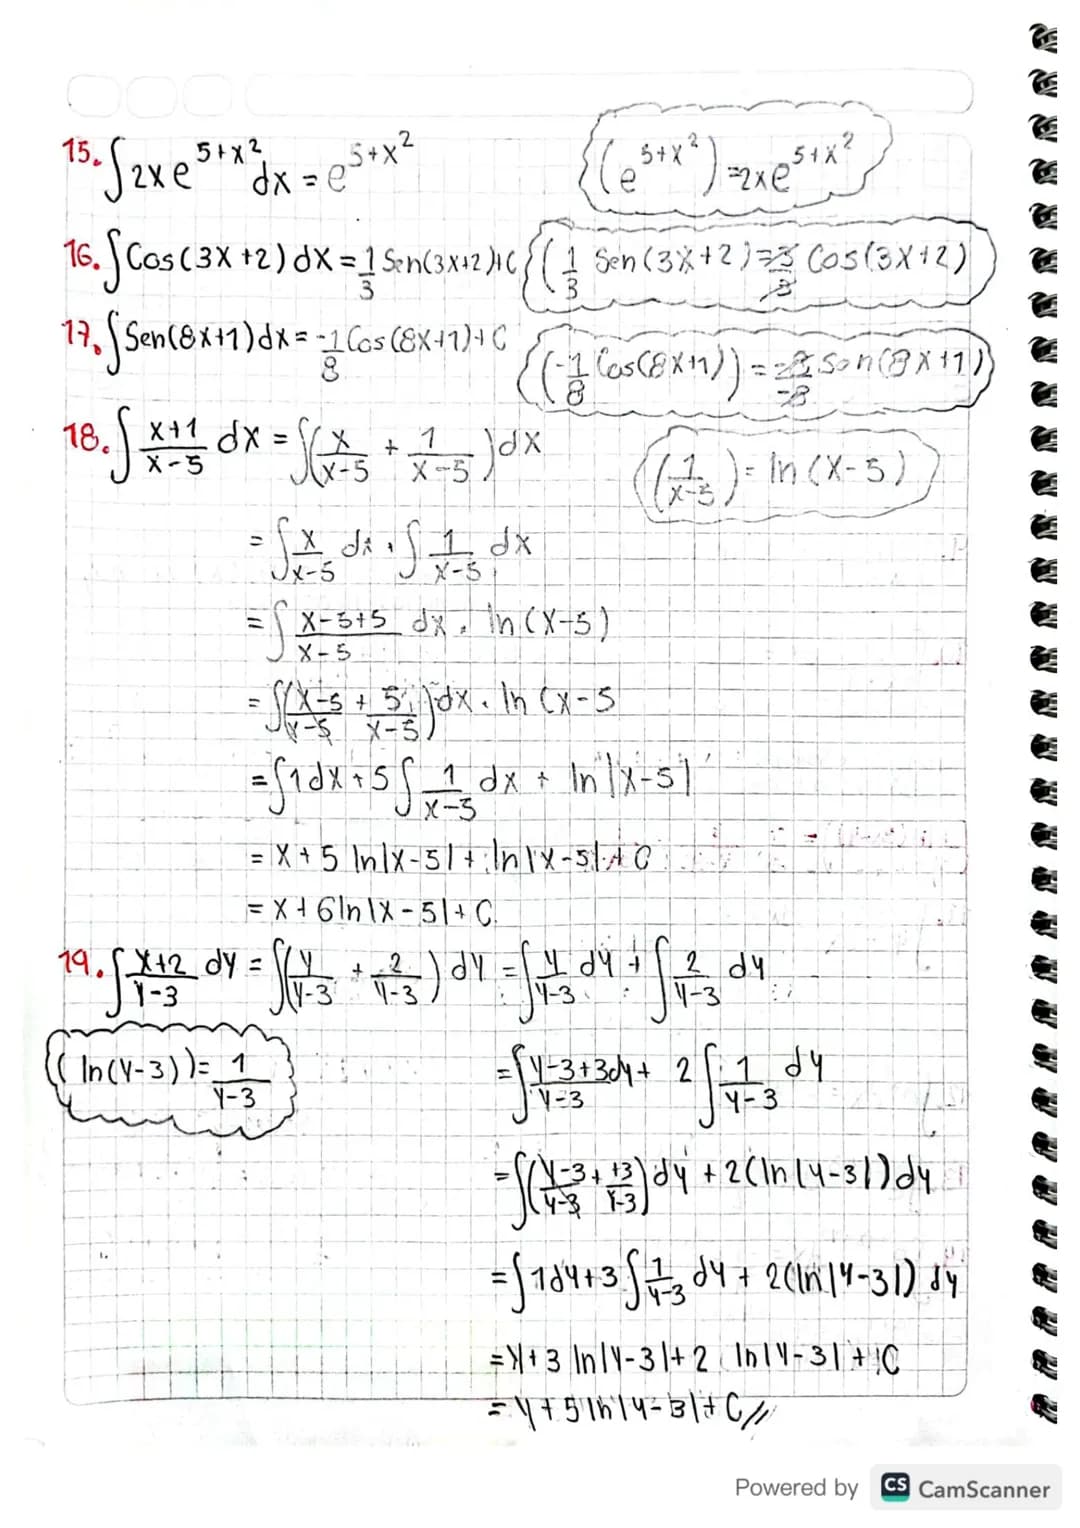 15. ∫2xe^(5+x²) dx = e^(5+x²) (e^(5+x²)) = 2xe^(5+x²)
16. ∫Cos(3x+2)dx = 1/3 Sen(3x+2)+C (1/3 Sen(3x+2) = 3/3 Cos(3x+2)
17. ∫Sen(8x+1)dx = -1/8 Cos(8x+1)+C (-1/8 Cos(8x+1)) = -8/-8 Sen(8x+1)
18. ∫ (x+1)/(x-5) dx = ∫(x/(x-5) + 1/(x-5))dx (1/(x-5)) = ln(x-5)
= ∫ x/(x-5) dx + ∫ 1/(x-5) dx
= ∫ (x-5+5)/(x-5) dx + ln(x-5)
= ∫((x-5)/(x-5) + 5/(x-5))dx + ln(x-5
= ∫1dx + 5∫ 1/(x-5) dx + ln|x-5|
= x + 5 ln|x-5| + ln|x-5| + C
= x + 6ln|x-5| + C.
19. ∫ (x+2)/(y-3) dy = ∫(y/(y-3) + 2/(y-3)) dy = ∫ y/(y-3) dy + ∫ 2/(y-3) dy
(ln(y-3)) = 1/(y-3)
= ∫ (y-3+3)/(y-3) dy + 2∫ 1/(y-3) dy
= ∫((y-3)/(y-3) + +3/(y-3))dy + 2(ln|y-3|)dy
= ∫1dy + 3∫ 1/(y-3) dy + 2(ln|y-3|) dy
= y + 3 ln|y-3| + 2 ln|y-3| + C
= y + 5 ln|y-3| + C //
Powered by CS CamScanner